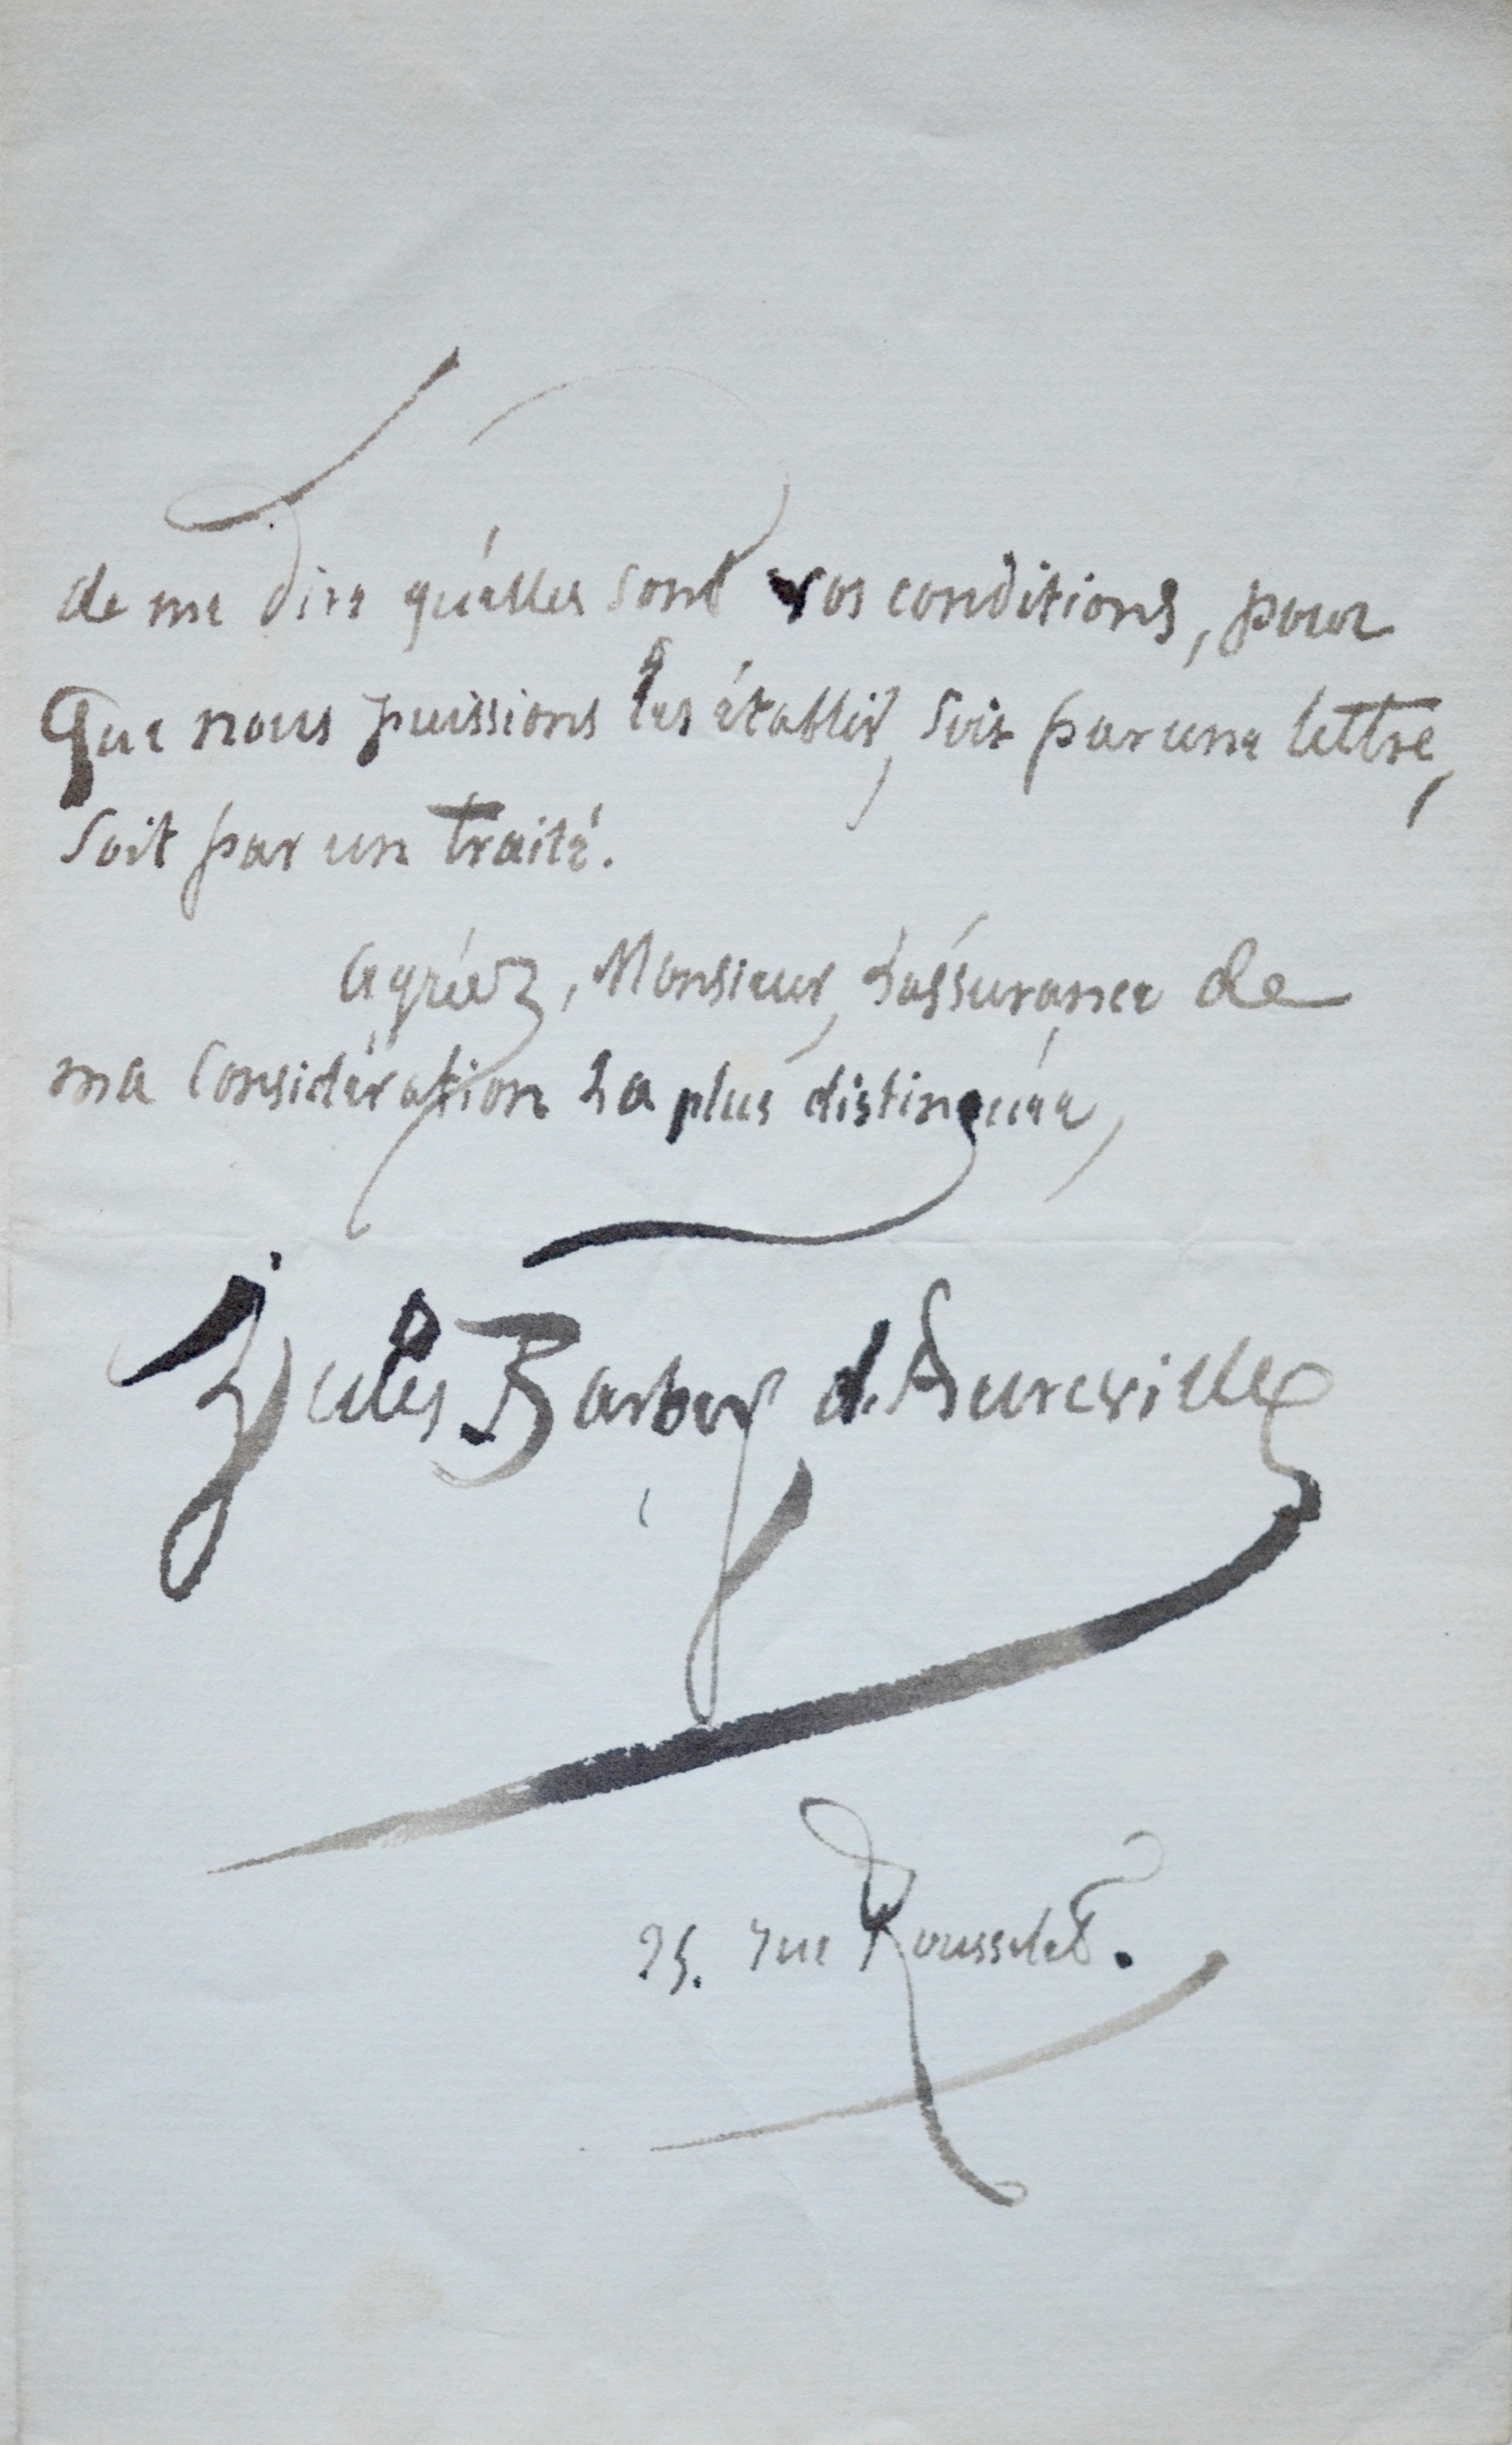 de me dire qu'élles sont vos conditions, pour
Que nous puissions les établir, soit par une lettre,
soit par un traité.
agréez, Monsieur, l'assurance de
ma considération La plus distinguée,
Jules Barbey d'Aurevilly
25. rue Rousselet.